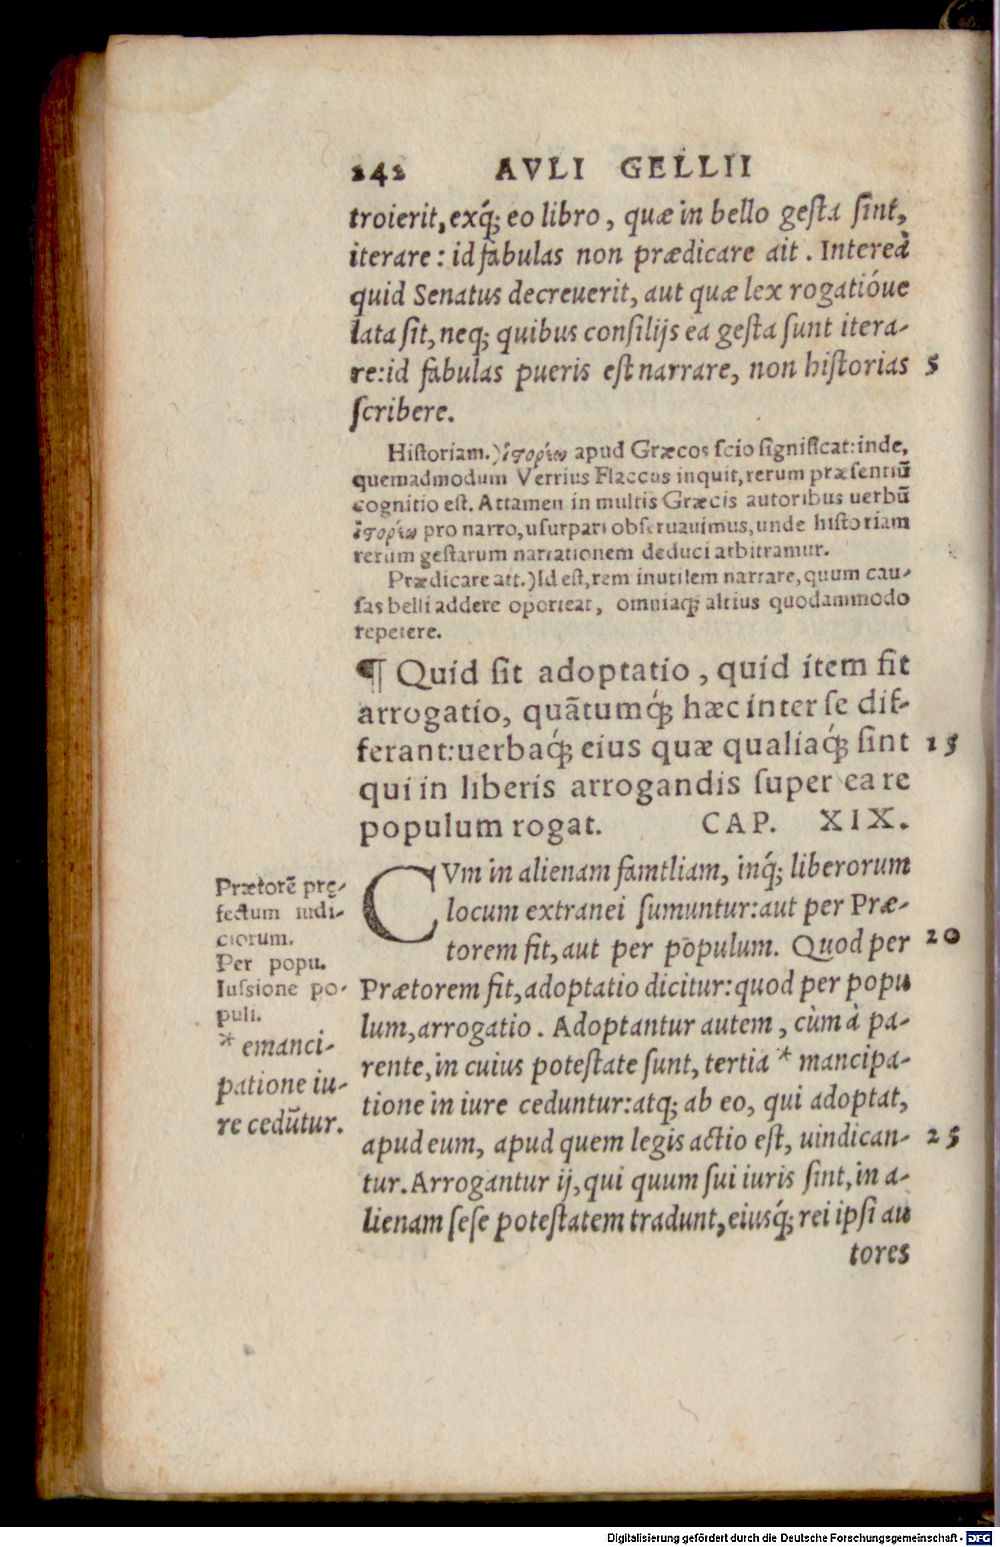 242 AVLI GELLII
troierit, exq́; eo libro, quæ in bello gesta sint,
iterare: id fabulas non prædicare ait. Intereà
quid Senatus decreuerit, aut quæ lex rogatióue
lata sit, neq; quibus consilijs ea gesta sunt itera-
re: id fabulas pueris est narrare, non historias 5
scribere.
Historiam.) ἱστορίαν apud Græcos scio significat: inde,
quemadmodum Verrius Flaccus inquit, rerum præsentiũ
cognitio est. Attamen in multis Græcis autoribus uerbũ
ἱστορίαν pro narro, usurpari obseruauimus, unde historiam
rerum gestarum narrationem deduci arbitramur.
Prædicare ait.) Id est, rem inutilem narrare, quum cau-
sas belli addere oporteat, omniaq́; altius quodammodo
repetere.
¶ Quid sit adoptatio, quid item sit
arrogatio, quãtumq́; hæc inter se dif-
ferant: uerbaq́; eius quæ qualiaq́; sint 15
qui in liberis arrogandis super ea re
populum rogat. CAP. XIX.
CVm in alienam famtliam, inq́; liberorum
locum extranei sumuntur: aut per Præ-
torem fit, aut per populum. Quod per 20
Prætorem fit, adoptatio dicitur: quod per popu
lum, arrogatio. Adoptantur autem, cùm à pa-
rente, in cuius potestate sunt, tertia * mancipa-
tione in iure ceduntur: atq; ab eo, qui adoptat,
apud eum, apud quem legis actio est, uindican- 25
tur. Arrogantur ij, qui quum sui iuris sint, in a-
lienam sese potestatem tradunt, eiusq́; rei ipsi au
tores
Prætorẽ prę-
fectum iudi-
ciorum.
Per popu.
Iussione po-
puli.
* emanci-
patione iu-
re cedũtur.
Digitalisierung gefördert durch die Deutsche Forschungsgemeinschaft - DFG